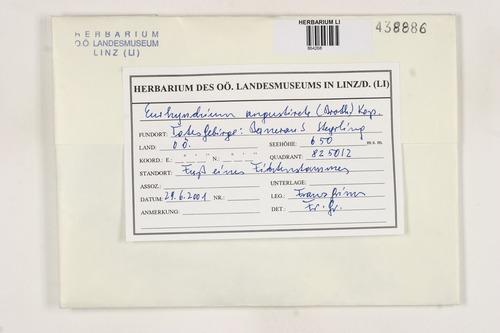 HERBARIUM
OÖ LANDESMUSEUM
LINZ (LI)
HERBARIUM LI
864208
438886
HERBARIUM DES OÖ. LANDESMUSEUMS IN LINZ/D. (LI)
Eurhynchium angustirete (Broth.) Kop.
FUNDORT: Totes Gebirge: S Steyrling
LAND: OÖ. SEEHÖHE: 650 m s. m.
KOORD.: E.: N.: QUADRANT: 8250/2
STANDORT: Fuß eines Fichtenstammes
ASSOZ.: UNTERLAGE:
DATUM: 29.6.2001 NR.: LEG.: Franz Grims
ANMERKUNG: DET.: Fr. Gr.